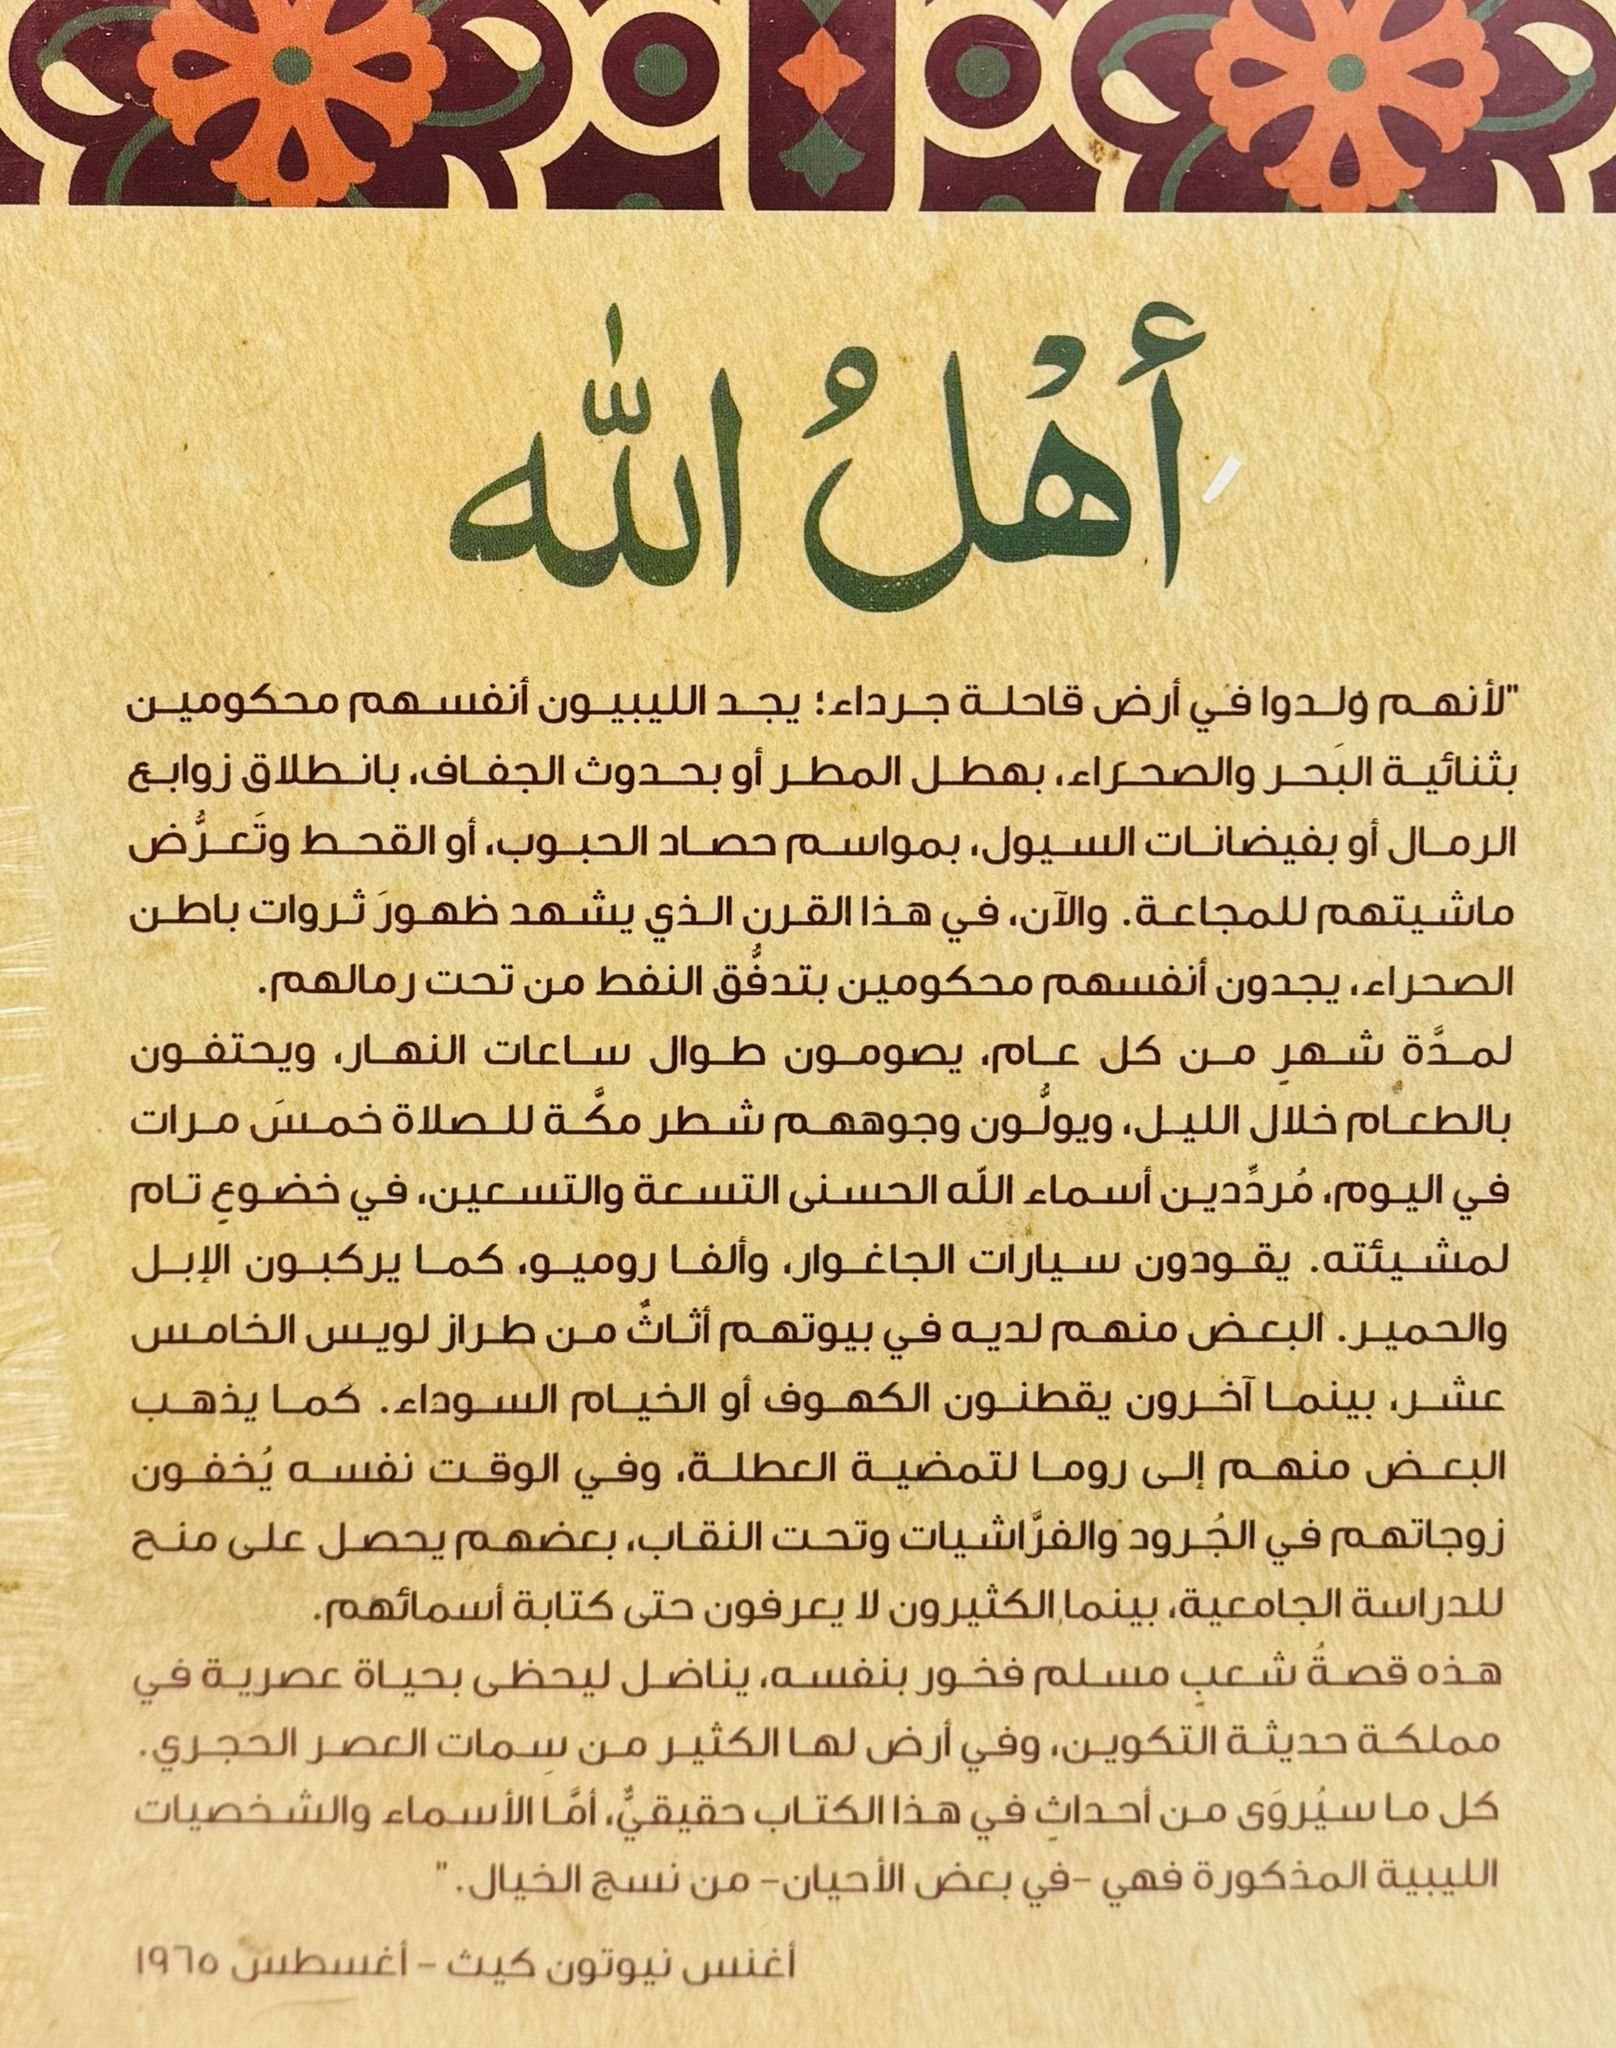 أَهْلُ اللّٰه
"لأنهم وُلدوا في أرض قاحلة جرداء؛ يجد الليبيون أنفسهم محكومين
بثنائية البَحر والصحراء، بهطل المطر أو بحدوث الجفاف، بانطلاق زوابع
الرمال أو بفيضانات السيول، بمواسم حصاد الحبوب، أو القحط وتَعرُّض
ماشيتهم للمجاعة. والآن، في هذا القرن الذي يشهد ظهورَ ثروات باطن
الصحراء، يجدون أنفسهم محكومين بتدفُّق النفط من تحت رمالهم.
لمدَّة شهرِ من كل عام، يصومون طوال ساعات النهار، ويحتفون
بالطعام خلال الليل، ويولُّون وجوههم شطر مكَّة للصلاة خمسَ مرات
في اليوم، مُردِّدين أسماء اللّه الحسنى التسعة والتسعين، في خضوعِ تام
لمشيئته. يقودون سيارات الجاغوار، وألفا روميو، كما يركبون الإبل
والحمير. البعض منهم لديه في بيوتهم أثاثٌ من طراز لويس الخامس
عشر، بينما آخرون يقطنون الكهوف أو الخيام السوداء. كما يذهب
البعض منهم إلى روما لتمضية العطلة، وفي الوقت نفسه يُخفون
زوجاتهم في الجُرود والفرَّاشيات وتحت النقاب، بعضهم يحصل على منح
للدراسة الجامعية، بينما الكثيرون لا يعرفون حتى كتابة أسمائهم.
هذه قصةُ شعبِ مسلم فخور بنفسه، يناضل ليحظى بحياة عصرية في
مملكة حديثة التكوين، وفي أرض لها الكثير من سِمات العصر الحجري.
كل ما سيُروَى من أحداثِ في هذا الكتاب حقيقيٌّ، أمَّا الأسماء والشخصيات
الليبية المذكورة فهي -في بعض الأحيان- من نسج الخيال."
أغنس نيوتون كيث - أغسطس ١٩٦٥